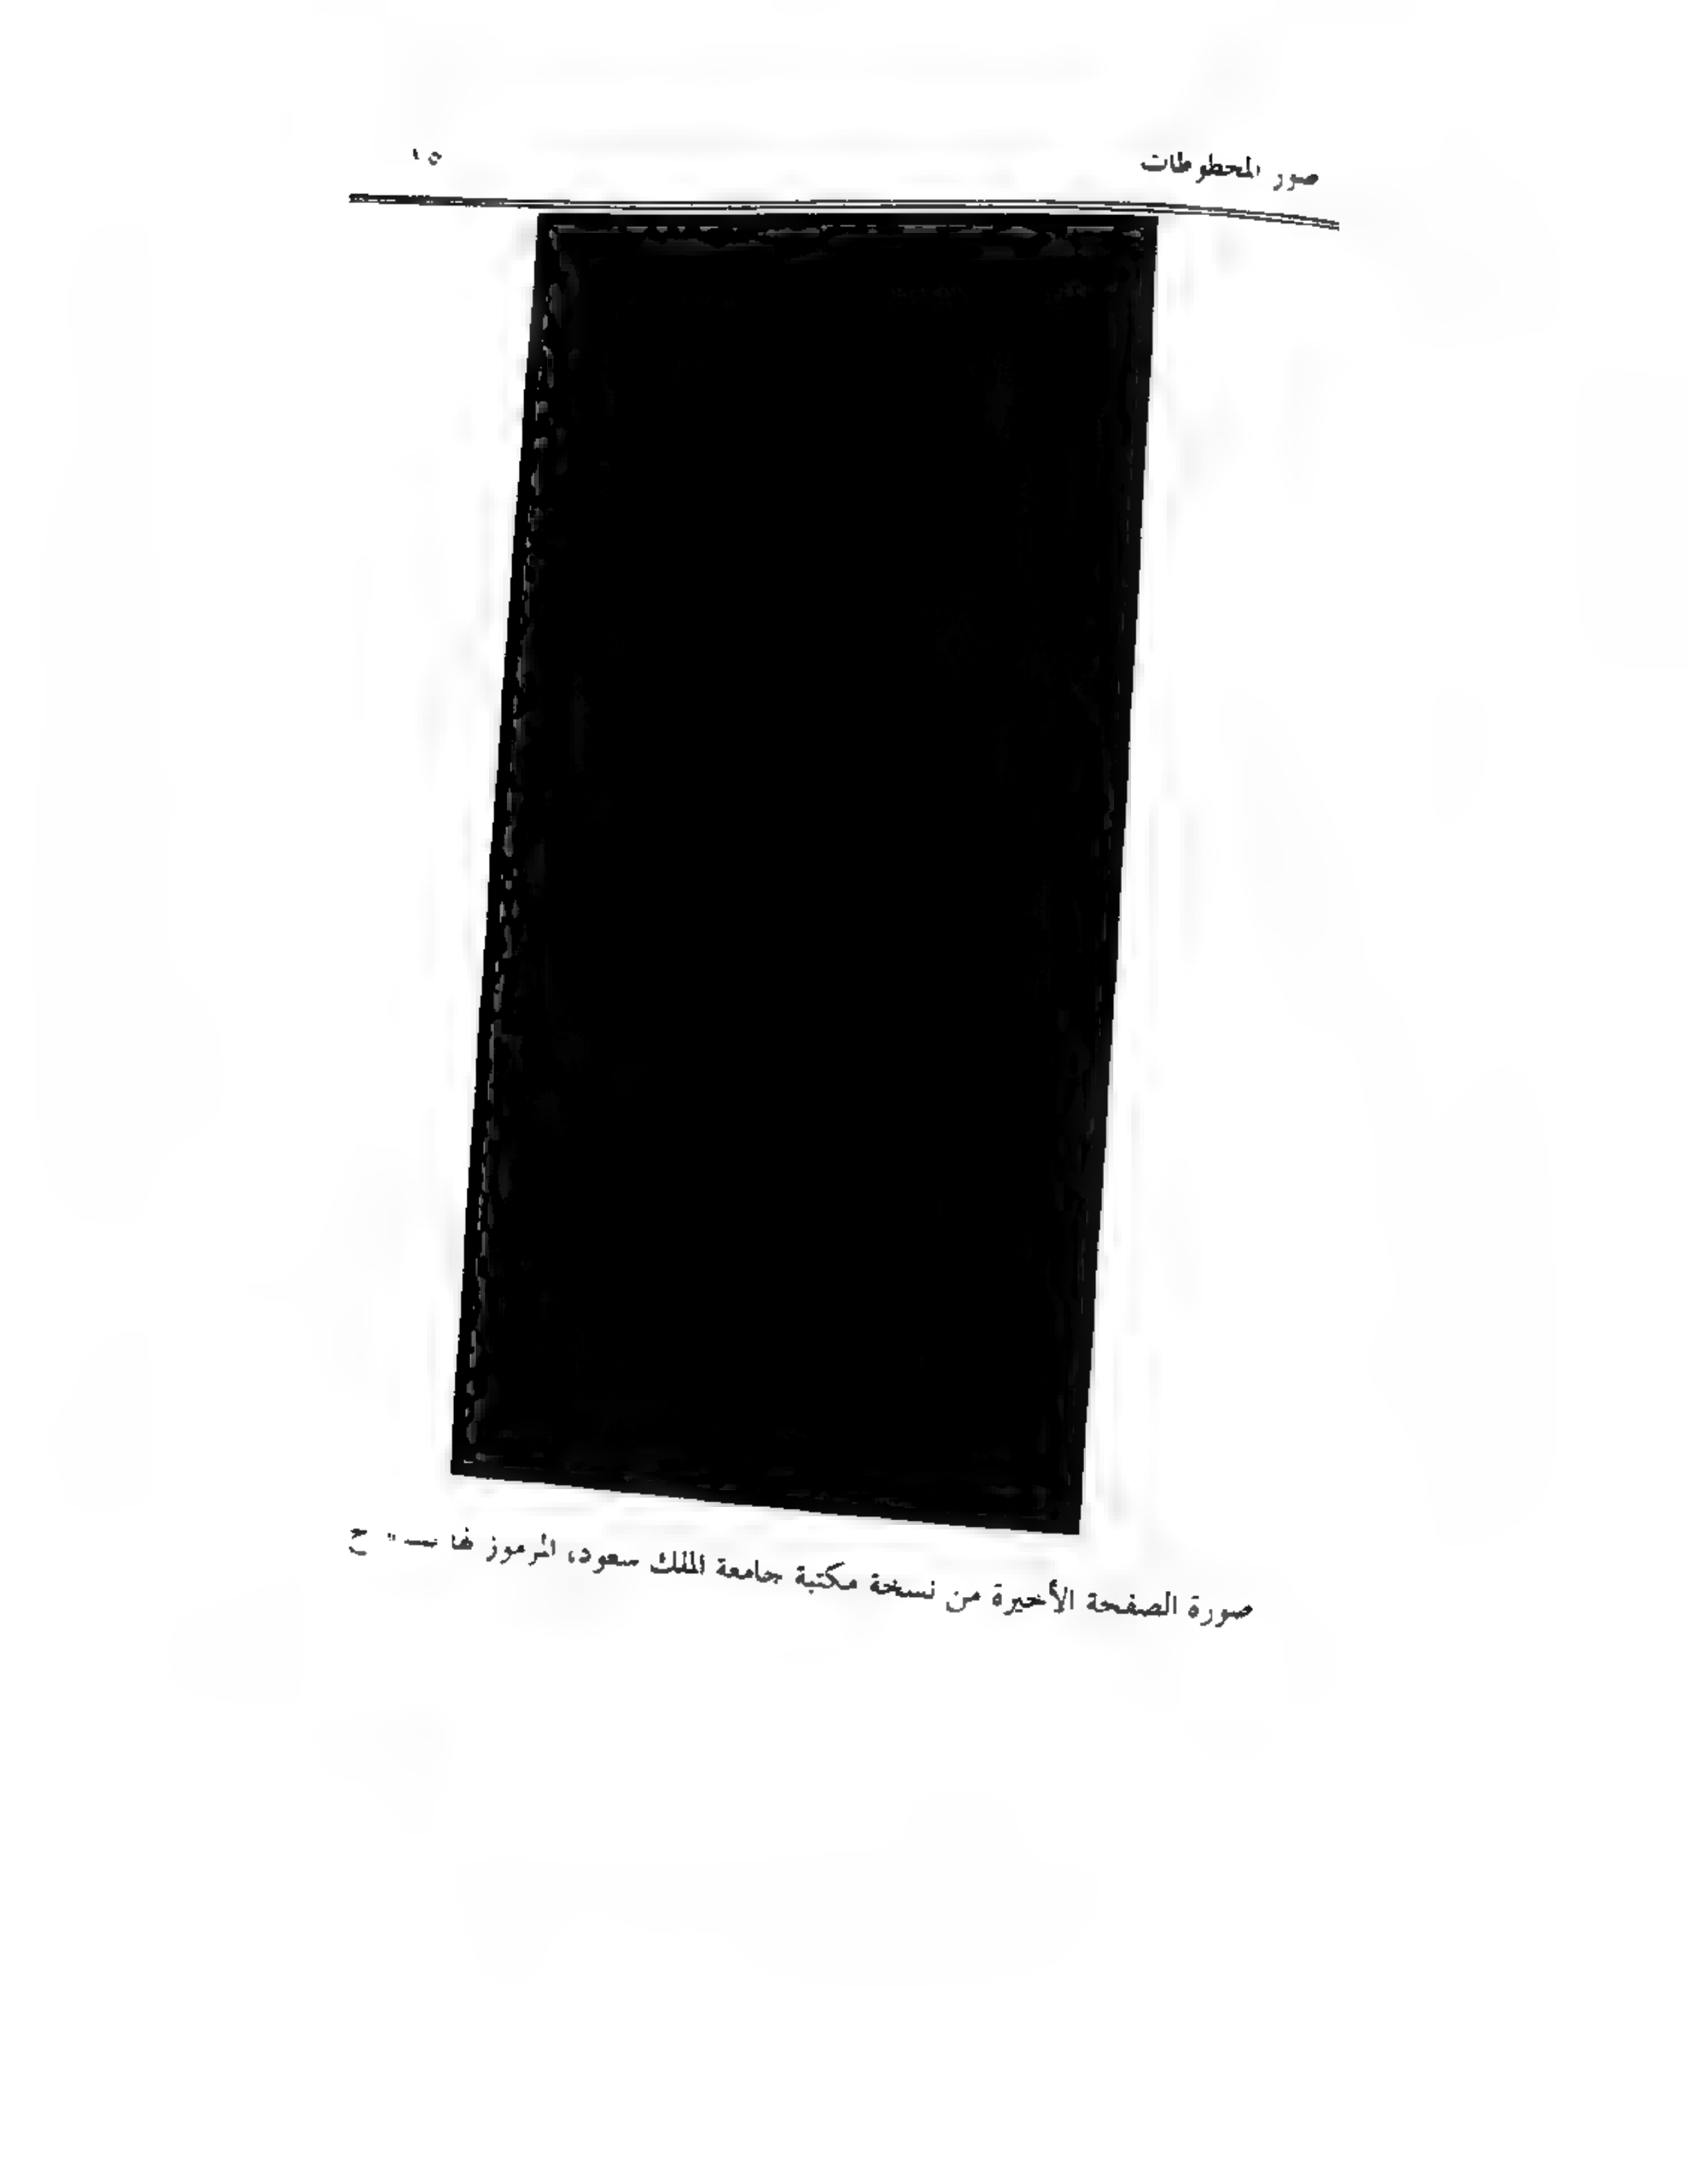 صور المخطوطات
صورة الصفحة الأخيرة من نسخة مكتبة جامعة الملك سعود، المرموز لها بـ " ح